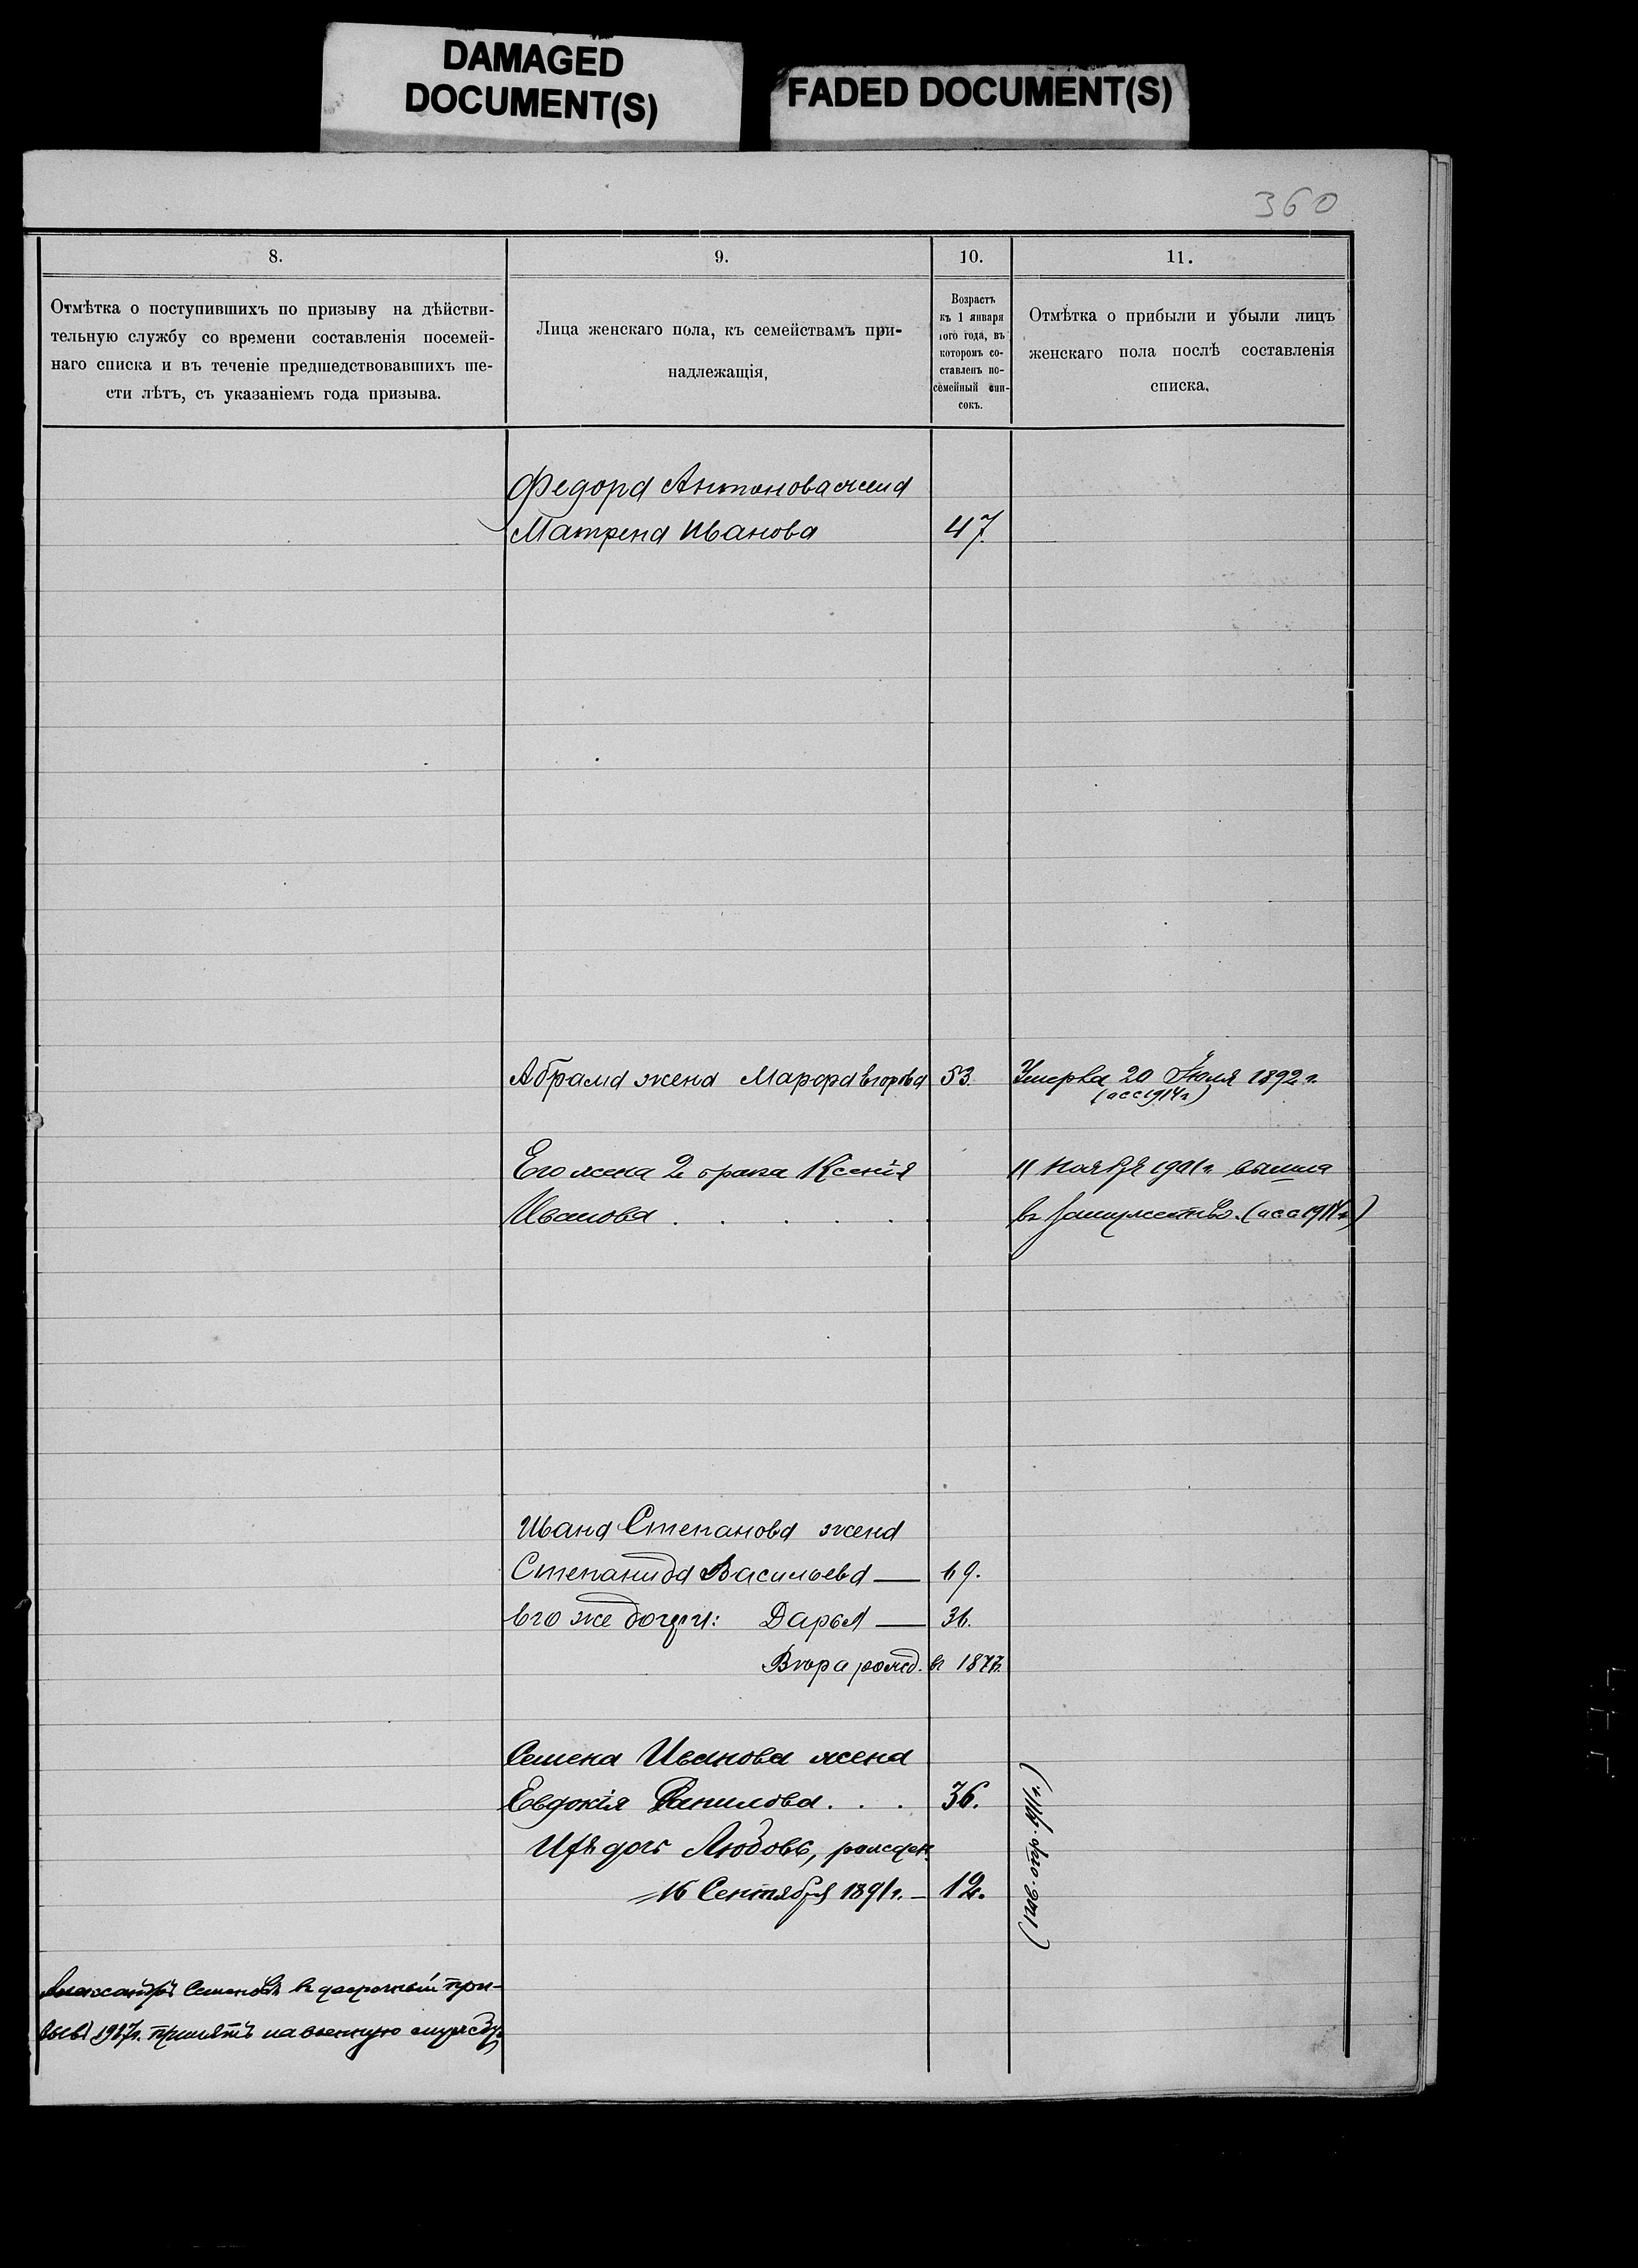 DAMAGED
DOCUMENT(S)
FADED DOCUMENT(S)
360
8.
9.
10.
11.
Отмѣтка о поступившихъ по призыву на дѣйстви-
тельную службу со времени составленія посемей-
наго списка и въ теченіе предшедствовавшихъ ше-
сти лѣтъ, съ указаніемъ года призыва.
Лица женскаго пола, къ семействамъ при-
надлежащія,
Возрастъ
къ 1 января
того года, въ
которомъ со-
ставленъ по-
семейный спи-
сокъ.
Отмѣтка о прибыли и убыли лицъ
женскаго пола послѣ составленія
списка.
Федора Антонова жена
Матрена Иванова 47.
Абрама жена Марфа Егорова 53. Умерла 20 Іюля 1892 г.
1914 г)
Его жена 2 брака Ксенія 11 ноября 1901 г. вышла
Иванова . . . . . . въ замужество. 1914 г)
Ивана Степанова жена
Степанида Васильева — 69.
Его же дочери: Дарья — 36.
Вѣра рожд. въ 1877.
Семена Иванова жена
Евдокія Данилова . . . 36.
Ихъ дочь Любовь, рожден.
16 Сентября 1891 г. — 12.
1911 г.)
Александръ Семеновъ въ досрочный при-
зывъ 1917 г. принятъ на военную службу